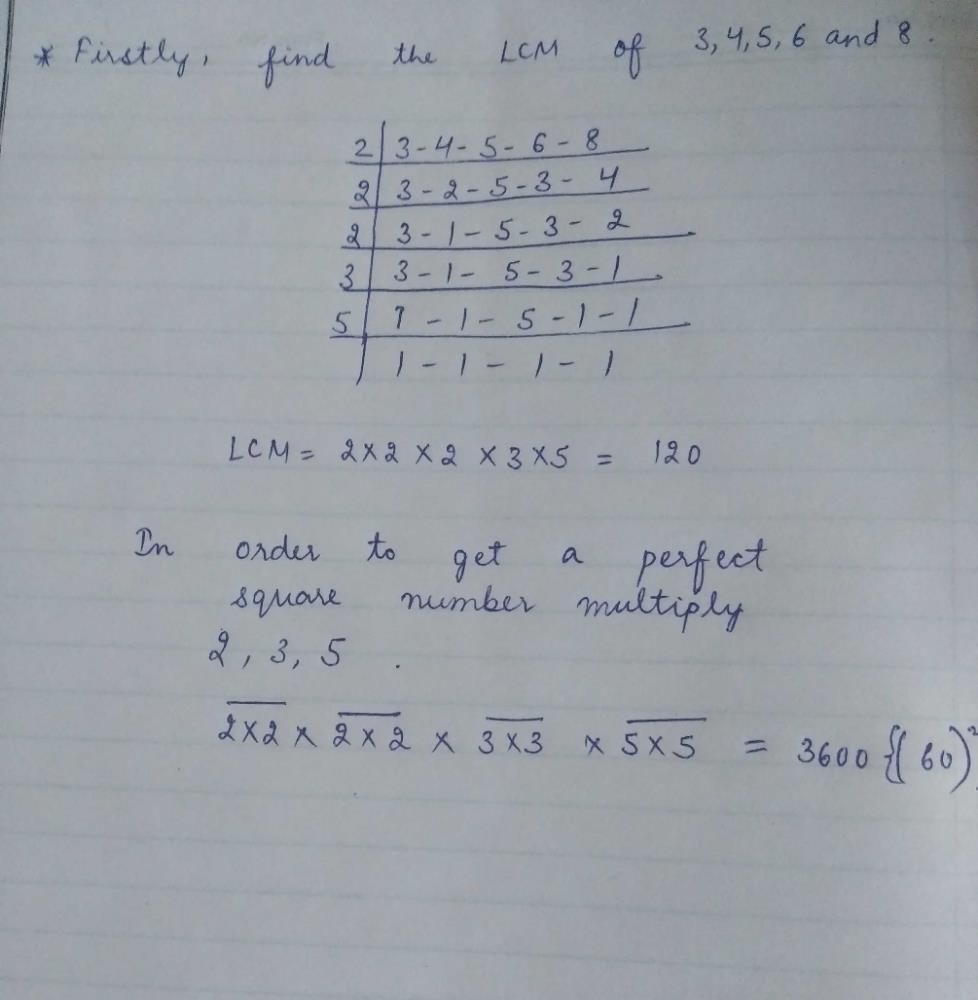 * Firstly, find the LCM of 3,4,5,6 and 8.
2 | 3-4-5-6-8
2 | 3-2-5-3-4
2 | 3-1-5-3-2
3 | 3-1-5-3-1
5 | 1-1-5-1-1
| 1-1-1-1
LCM = 2×2×2×3×5 = 120
In order to get a perfect
square number multiply
2, 3, 5.
2×2 × 2×2 × 3×3 × 5×5 = 3600 {(60)²